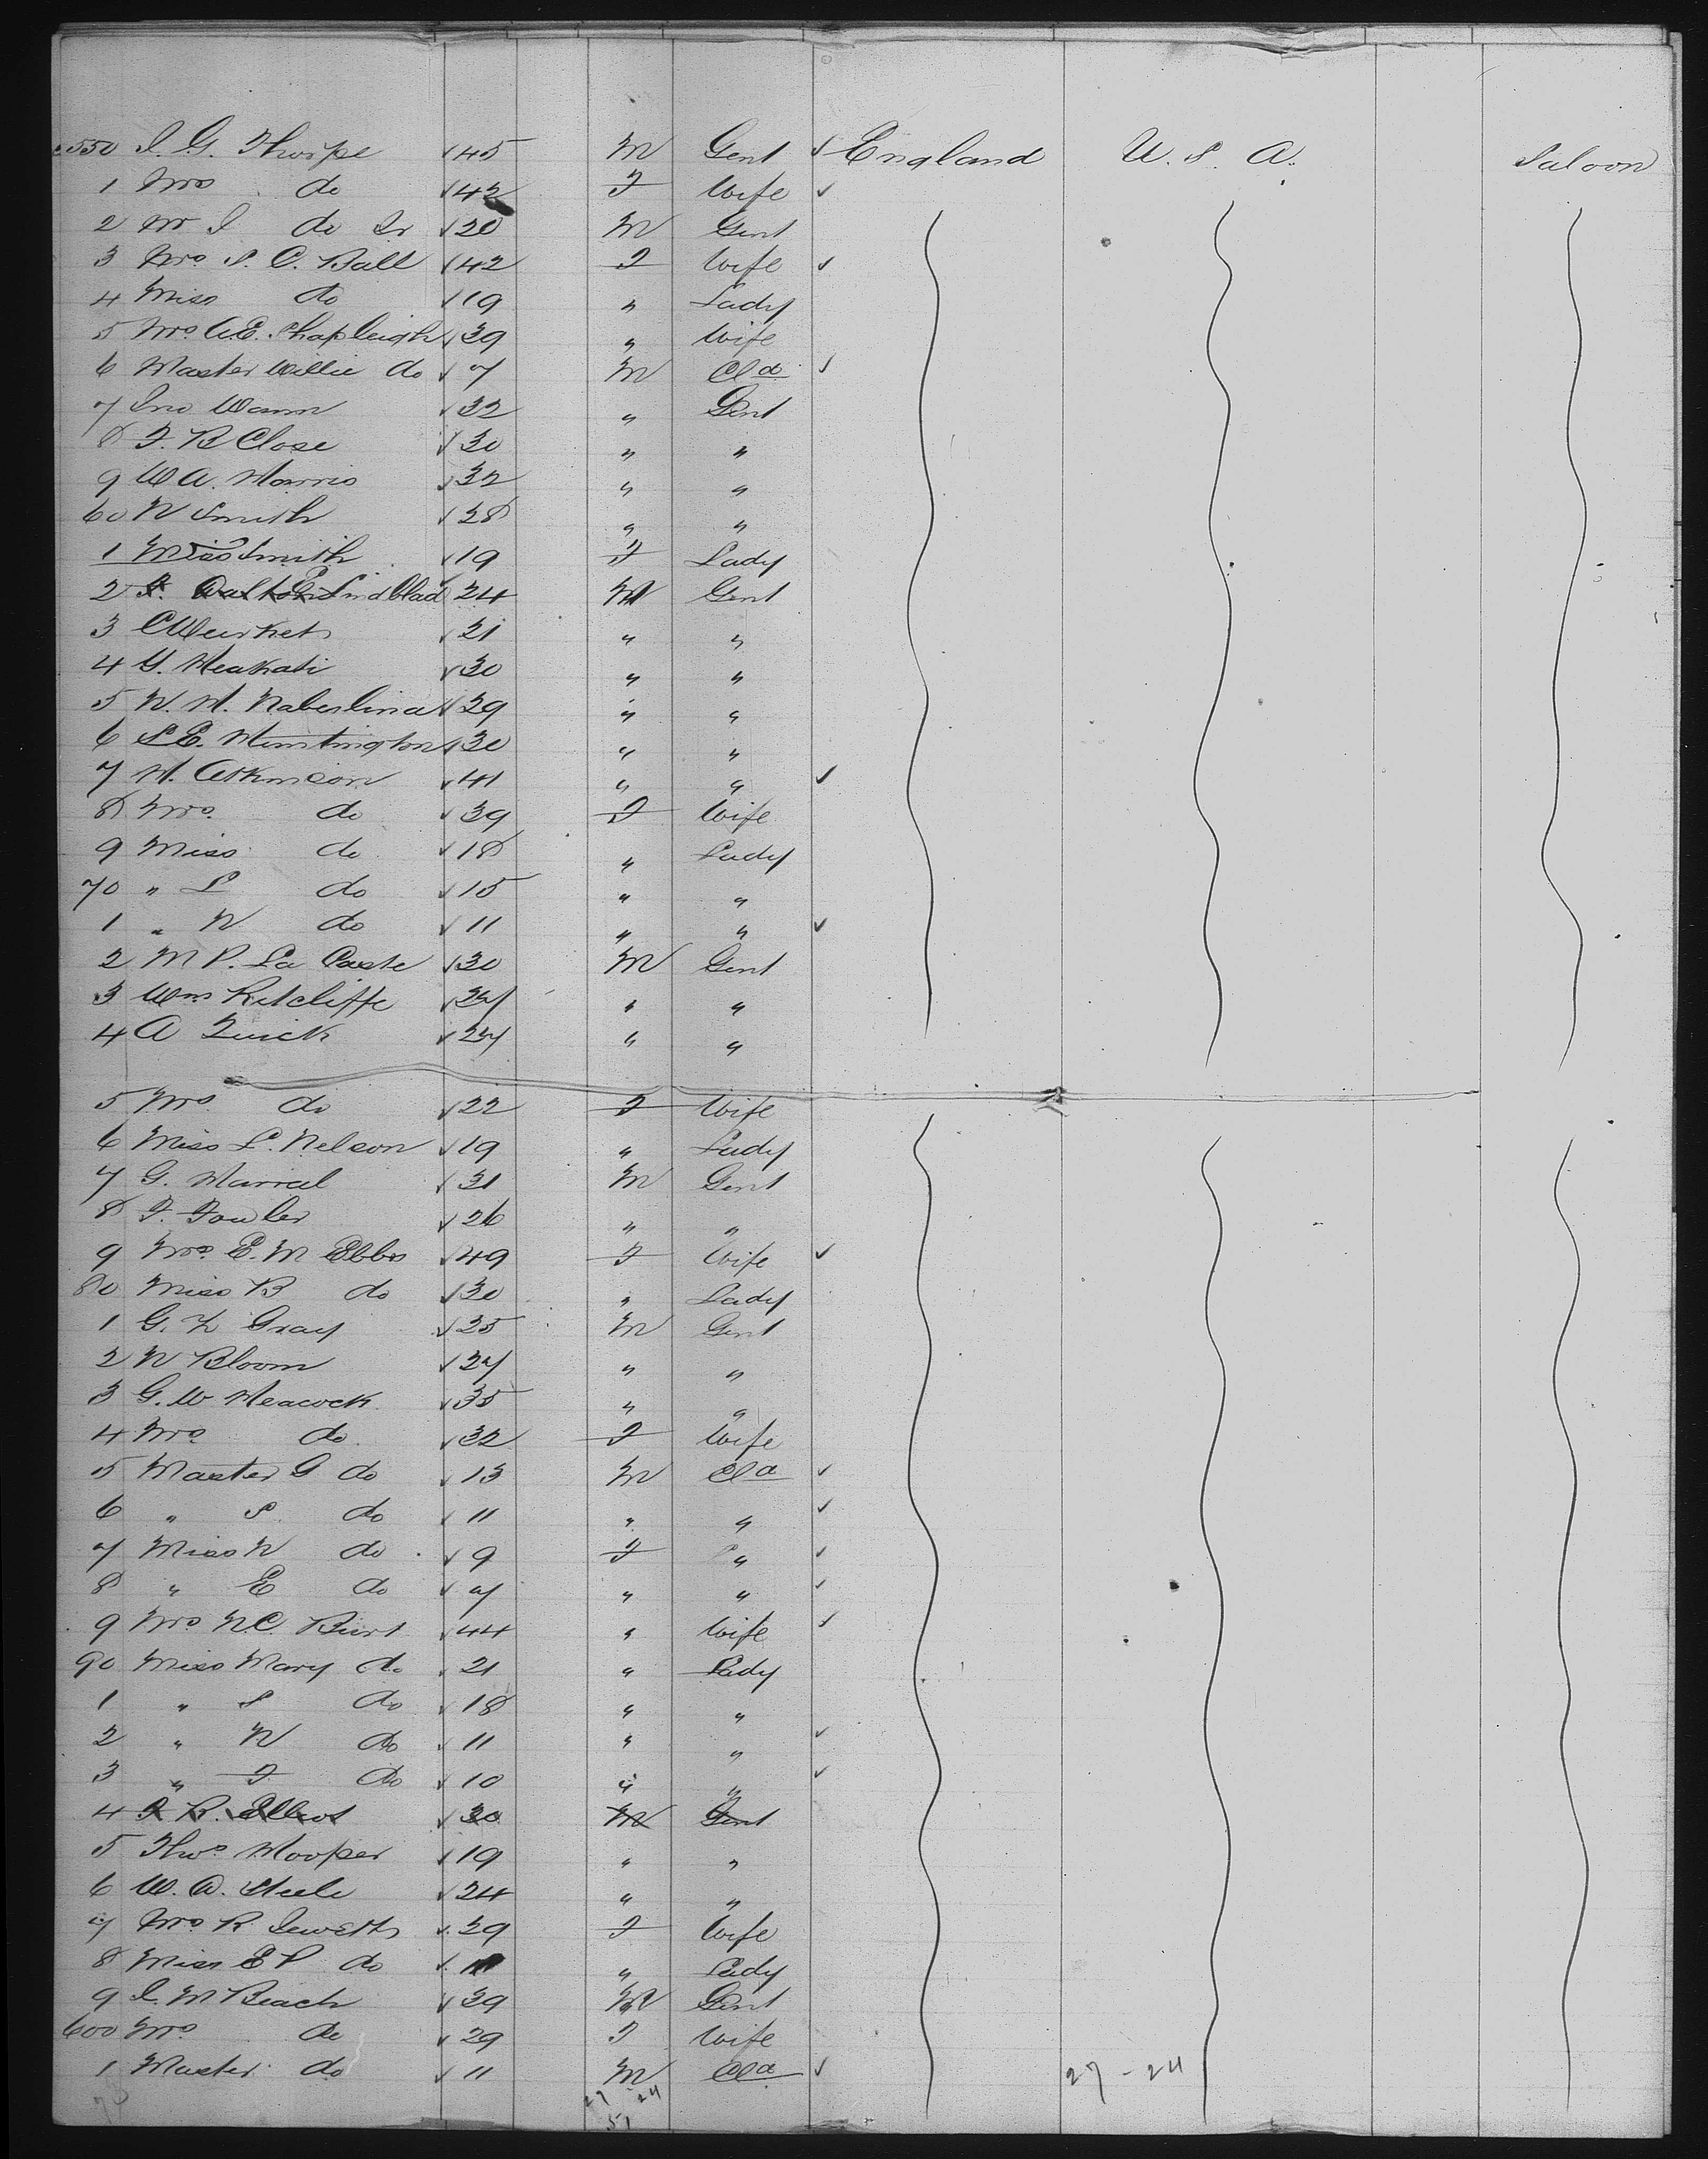 550 J. G. Thorpe 45 M Gent England U. S. A. Saloon
1 Mrs do 42 F Wife
2 Mr J do Jr 20 M Gent
3 Mrs S. C. Ball 42 F Wife
4 Miss do 19 " Lady
5 Mrs A.E. Shapleigh 39 " Wife
6 Master Willie do 7 M Cld
7 Jno Wann 32 " Gent
8 F. B Close 30 " "
9 W A. Harris 32 " "
60 N Smith 28 " "
1 Miss Smith 19 F Lady
2 Lindblad 24 M Gent
3 21 " "
4 30 " "
5 N. H. 29 " "
6 S E. Huntington 30 " "
7 H. Atkinson 41 " "
8 Mrs do 39 F Wife
9 Miss do 18 " Lady
70 " L do 15 " "
1 " N do 11 " "
2 M P. La Caste 30 M Gent
3 Wm Retcliffe 27 " "
4 A Quick 27 " "
5 Mrs do 22 F Wife
6 Miss L. Nelson 19 " Lady
7 G. 31 M Gent
8 F. Fowler 26 " "
9 Mrs E. M Ebbs 49 F Wife
80 Miss B do 30 " Lady
1 G. Z Gray 25 M Gent
2 N Bloom 27 " "
3 G. W Heacock 35 " "
4 Mrs do 32 F Wife
5 Master G do 13 M Cld
6 " S do 11 " "
7 Miss N do 9 F "
8 " E do 7 " "
9 Mrs N.C. Burt 44 " Wife
90 Miss Mary do 21 " Lady
1 " S do 18 " "
2 " N do 11 " "
3 " F do 10 " "
4 F R. Elliot 30 M Gent
5 Thos Hooper 19 " "
6 W. A. Steele 24 " "
7 Mrs R. Jewett 39 F Wife
8 Miss E P do 11 " Lady
9 J. M Beach 39 M Gent
600 Mrs do 29 F Wife
1 Master do 11 M Cld
27 - 24 27 - 24
51